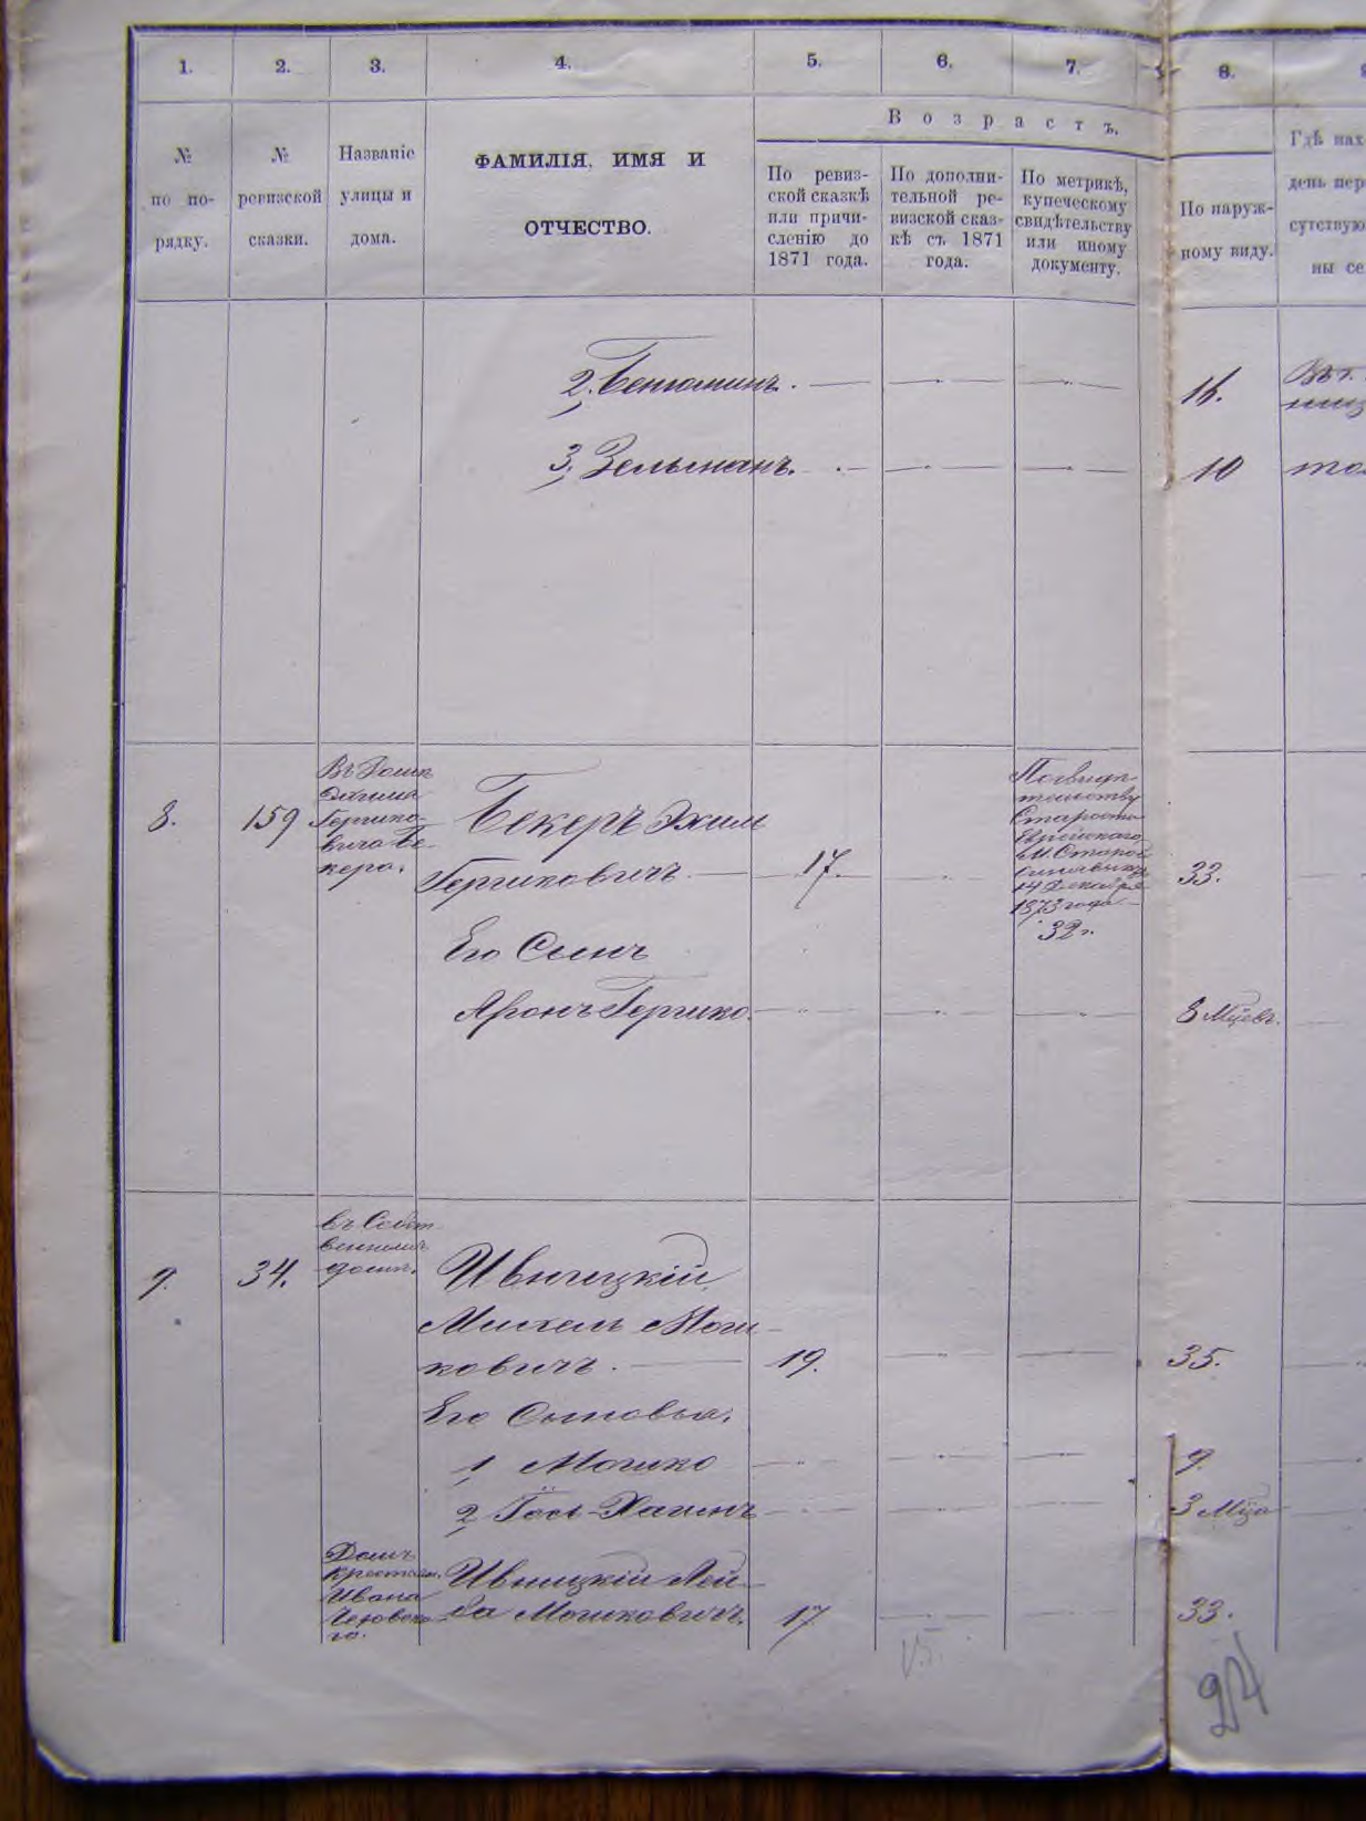 1. 2. 3. 4. 5. 6. 7. 8.
Возрастъ.
№ по по-рядку.
№ ревизской сказки.
Названіе улицы и дома.
ФАМИЛІЯ, ИМЯ И
ОТЧЕСТВО.
По ревиз-
ской сказкѣ
или причи-
сленію до
1871 года.
По дополни-
тельной ре-
визской сказ-
кѣ съ 1871
года.
По метрикѣ,
купеческому
свидѣтельству
или иному
документу.
По наруж-
ному виду.
Гдѣ нах
день пер
сутствую
ны се
2. Бенюминъ.
10
3, Зельманъ.
8. 159
Въ Домѣ
Эхима
Гершко-
вича Бе-
кера.
Бекеръ Эхим
Гершковичъ. 17. 33.
Старосты
Еврейскаго
14 Декабря
1873 года
32 г.
Его Сынъ
Аронъ Гершко. 8 Мцевъ.
9. 34.
въ Собст
венномъ
домѣ.
Ивницкій
Михель Мош
ковичъ. 19. 35.
Его Сыновья,
1 Мошко 9.
2 3 Мца
Домъ
крестьян.
Ивана
Ивницкій Лей
ба Мошковичъ. 17 33.